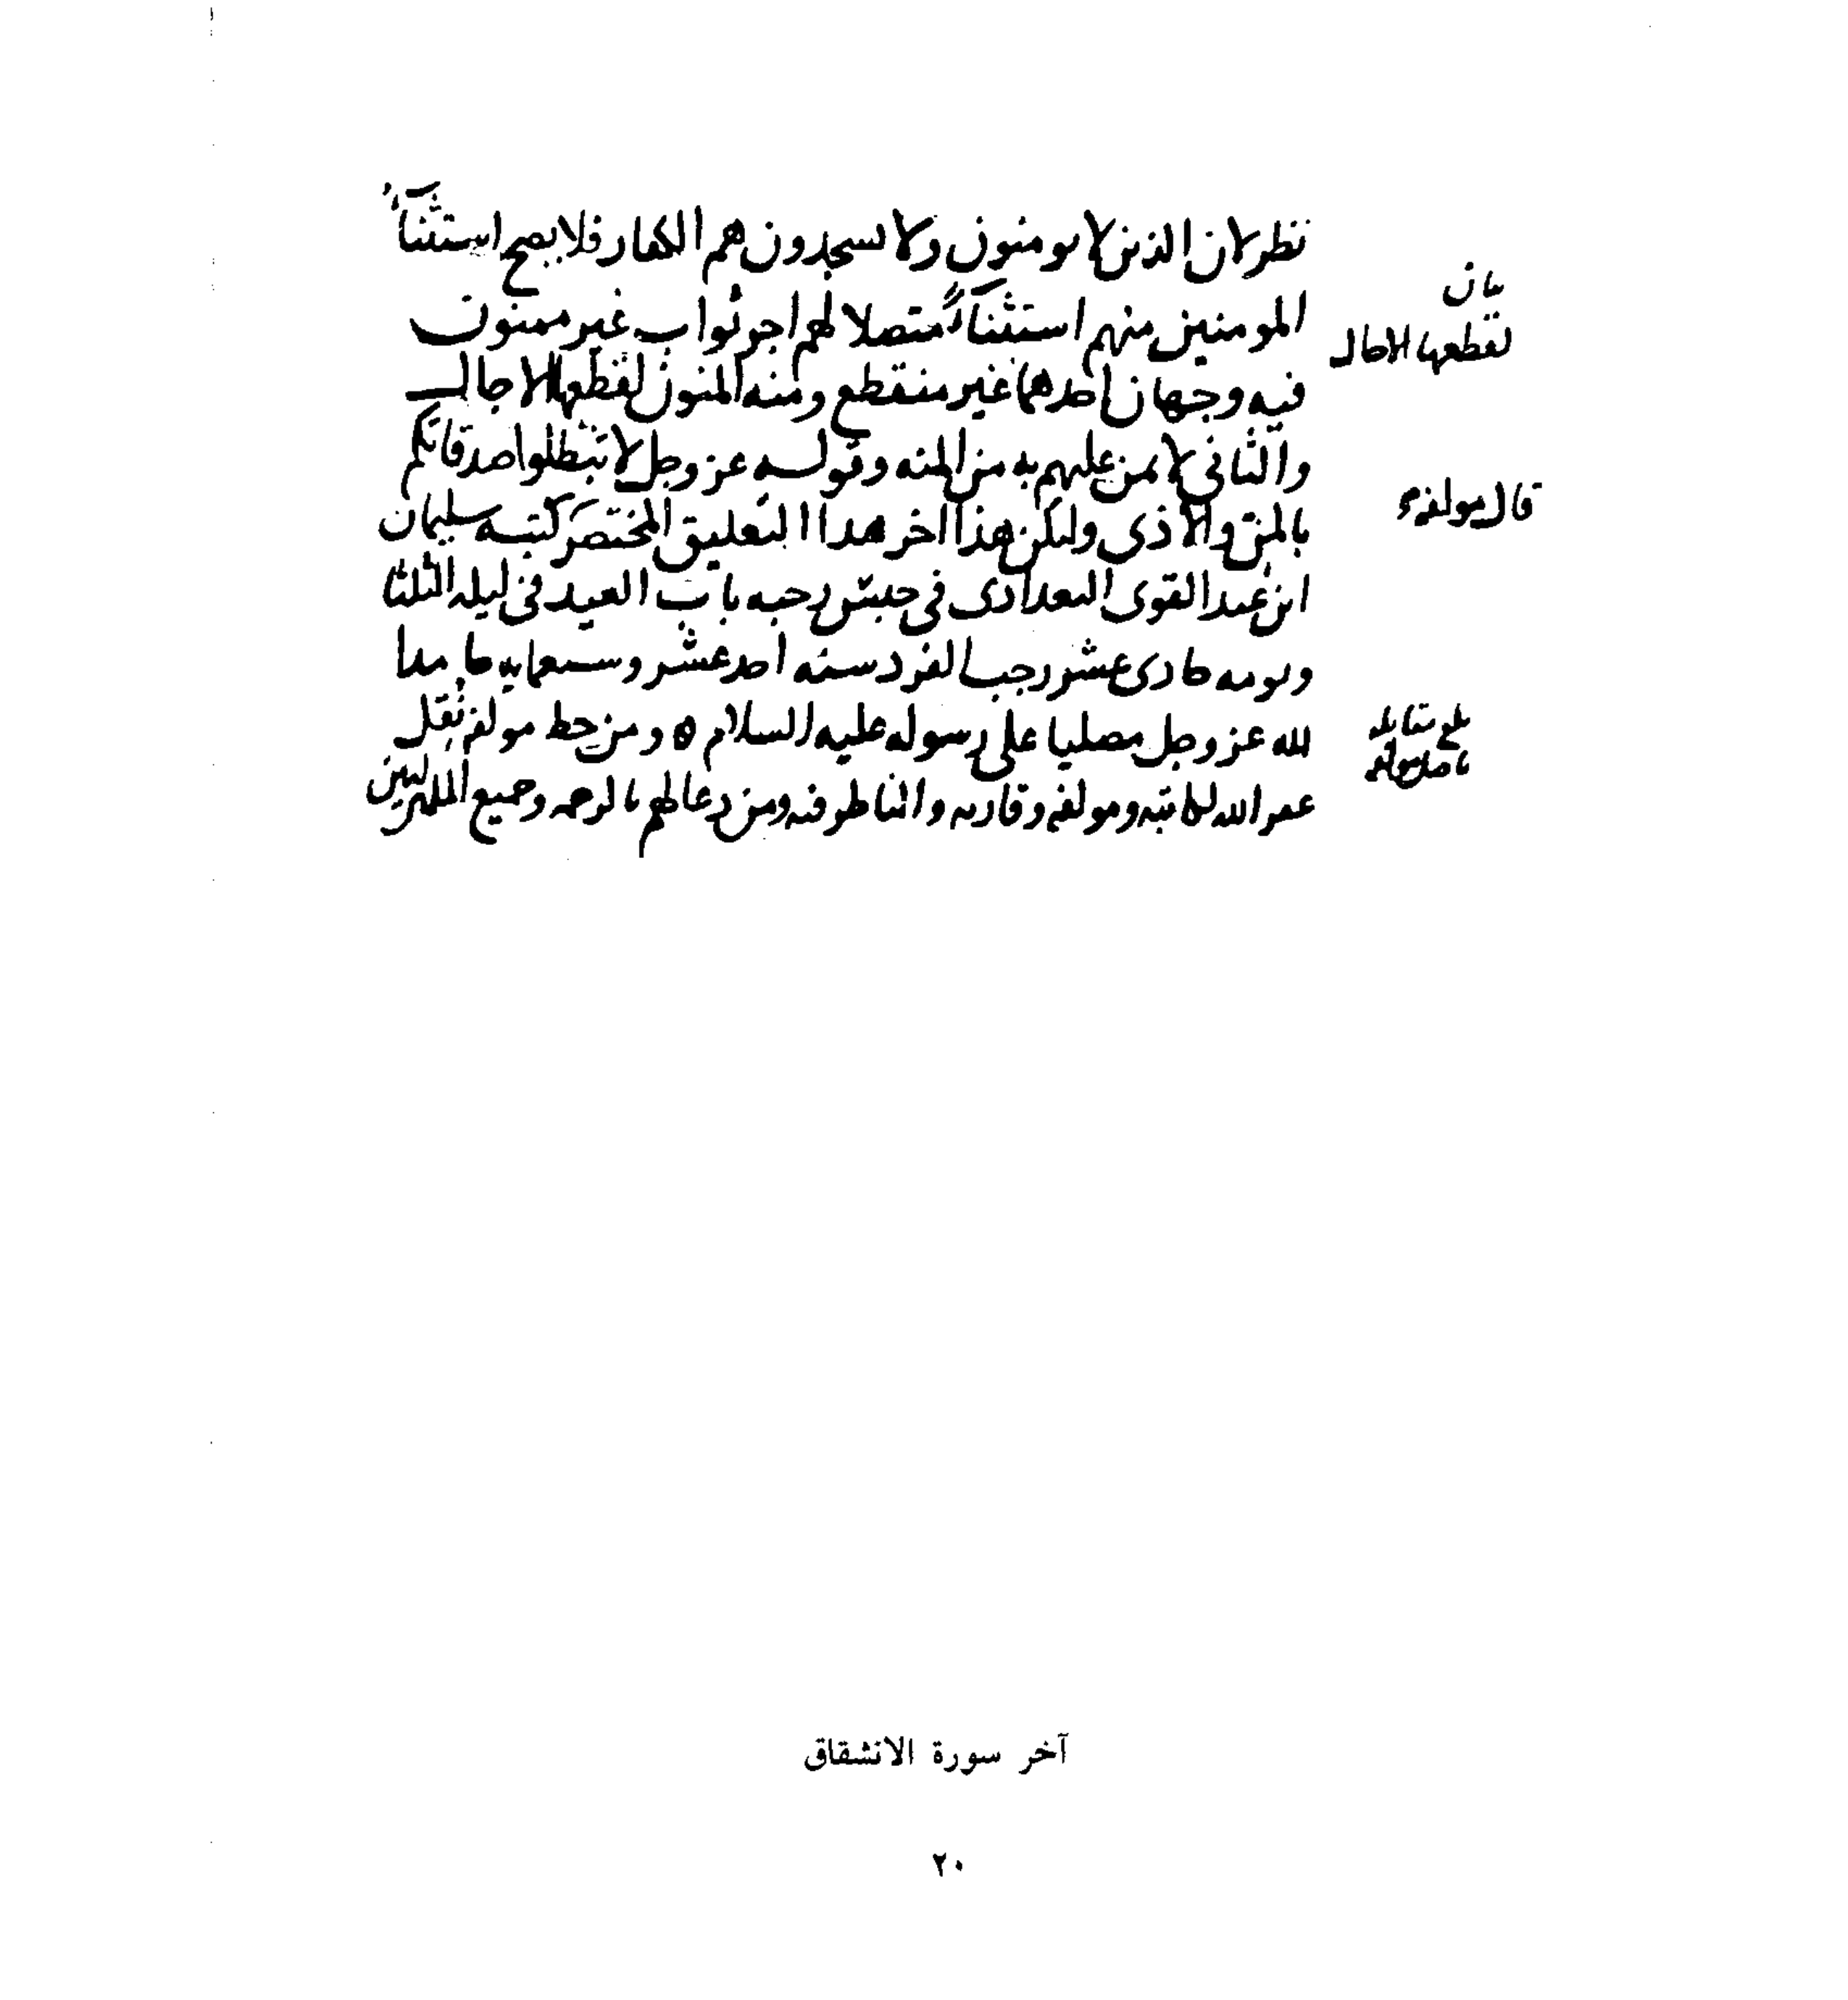 نظر لان الذين لا يومنون ولا يسجدون هم الكفار فلا يصح استثناء
المومنين منهم استثناءً متصلا لهم اجر ثواب غير ممنون
فيه وجهان احدهما غير منقطع ومنه المنون لقطعها الاجال
والثاني لا يمن عليهم به من المنه وقوله عز وجل لا تبطلوا صدقاتكم
بالمن والاذى وليكن هذا اخر هذا التعليق المختصر كتبه سليمان
ابن عبد القوى البغدادى في حبس رحبه باب العيد في ليله الثلثا
ويومه حادى عشر رجب الفرد سنه احد عشر وسبعمايه حامدا
لله عز وجل مصليا على رسوله عليه السلام ه ومن خط مولفه نقل
غفر الله لكاتبه ومولفه وقاريه والناظر فيه ومن دعا لهم بالرحمه وجميع المسلمين
بيان
لقطعها الاجال
قال مولفه
بلغ مقابله
باصل مولفه
آخر سورة الانشقاق
٢٠